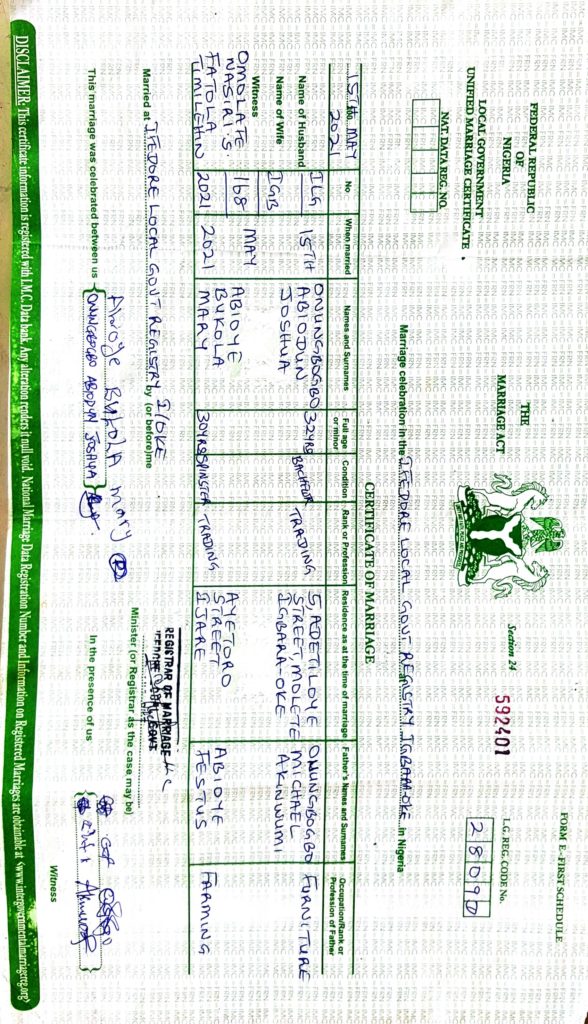 FEDERAL REPUBLIC
OF
NIGERIA
LOCAL GOVERNMENT
UNIFIED MARRIAGE CERTIFICATE
NAT. DATA REG. NO.
THE
MARRIAGE ACT
Section 24
592401
FORM E - FIRST SCHEDULE
L.G. REG. CODE No.
28090
CERTIFICATE OF MARRIAGE
Marriage celebration in the IFEDORE LOCAL GOVT REGISTRY IGBARA-OKE in Nigeria
No
When married
Names and Surnames
Full age or minor
Condition
Rank or Profession
Residence as at the time of marriage
Father's Names and Surnames
Occupation/Rank or Profession of Father
15TH MAY
2021
Name of Husband
Name of Wife
Witness
OMOLAFE
NASIRU.S
FATOLA
TIMILEHIN
ILG
IGB
168
2021
15TH
MAY
2021
ONUNGBOGBO
ABIODUN
JOSHUA
32YRS
BACHELOR
TRADING
5, ADETILOYE
STREET, MOLETE
IGBARA-OKE
ONUNGBOGBO
MICHAEL
AKINWUMI
FURNITURE
ABIOYE
BUKOLA
MARY
30YRS
SPINSTER
TRADING
AYETORO
STREET
IJARE
ABIOYE
FESTUS
FARMING
Married at IFEDORE LOCAL GOVT REGISTRY I/OKE by (or before)me
REGISTRAR OF MARRIAGE
Minister (or Registrar as the case may be)
This marriage was celebrated between us
Abioye BUKOLA mary
ONUNGBOGBO ABIODUN JOSHUA
In the presence of us
Witness
DISCLAIMER: This certificate information is registered with I.M.C. Data bank. Any alteration renders it null void. National Marriage Data Registration Number and Information on Registered Marriages are obtainable at <www.intergovernmentalmarriagereg.org>